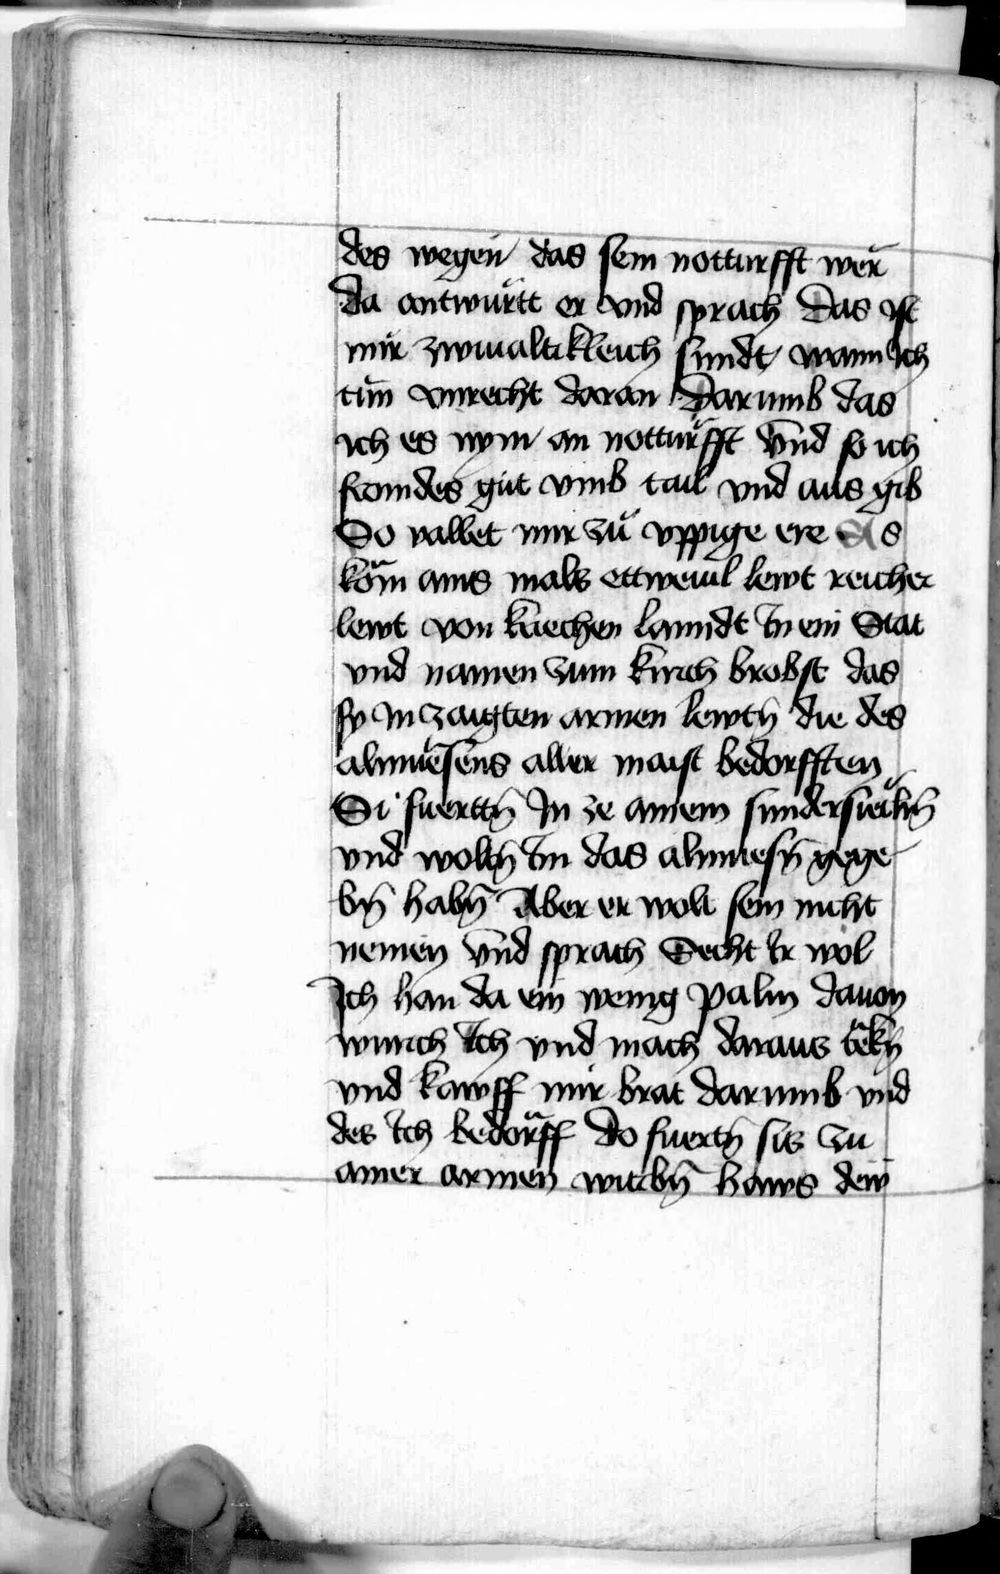 des wegen das sein notturfft wër
da antwürtt er vnd sprach Das ist
mir zwiualtikleich sundt wann Ich
tün vnrecht daran Darumb das
ich es nym an notturfft Vnd so ich
fromdes güt vmb tail vnd aus gib
So vallet mir zü vppige ere Es
köm ains mals ettweuil lewt reicher
lewt von kriechen lanndt In ein Stat
vnd namen zum kirch brobst das
sy In zaigten armen lewtn̄ die des
almüesens aller maist bedorfften
Si fuerttn̄ In ze ainem sundersiechn̄
vnd woltn̄ Im das almuesn̄ gege
bn̄ habn̄ Aber er wolt sein nicht
nemen Vnd sprach Secht Ir wol
Ich han da ein wenig palm dauon
wurch Ich vnd mach daraus tëkn̄
vnd kawff mir brat darumb vnd
des Ich bedörff Do fuertn̄ sis zu
ainer armen witibn̄ haws dew